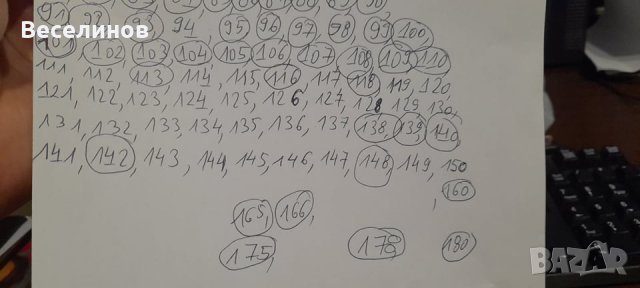 Веселинов
92, 93, 94, 95, 96, 97, 98, 99, 100,
101, 102, 103, 104, 105, 106, 107, 108, 109, 110
111, 112, 113, 114, 115, 116, 117, 118, 119, 120
121, 122, 123, 124, 125, 126, 127, 128, 129, 130,
131, 132, 133, 134, 135, 136, 137, 138, 139, 140,
141, 142, 143, 144, 145, 146, 147, 148, 149, 150
160
165, 166,
175, 178, 180
Веселинов
bazar